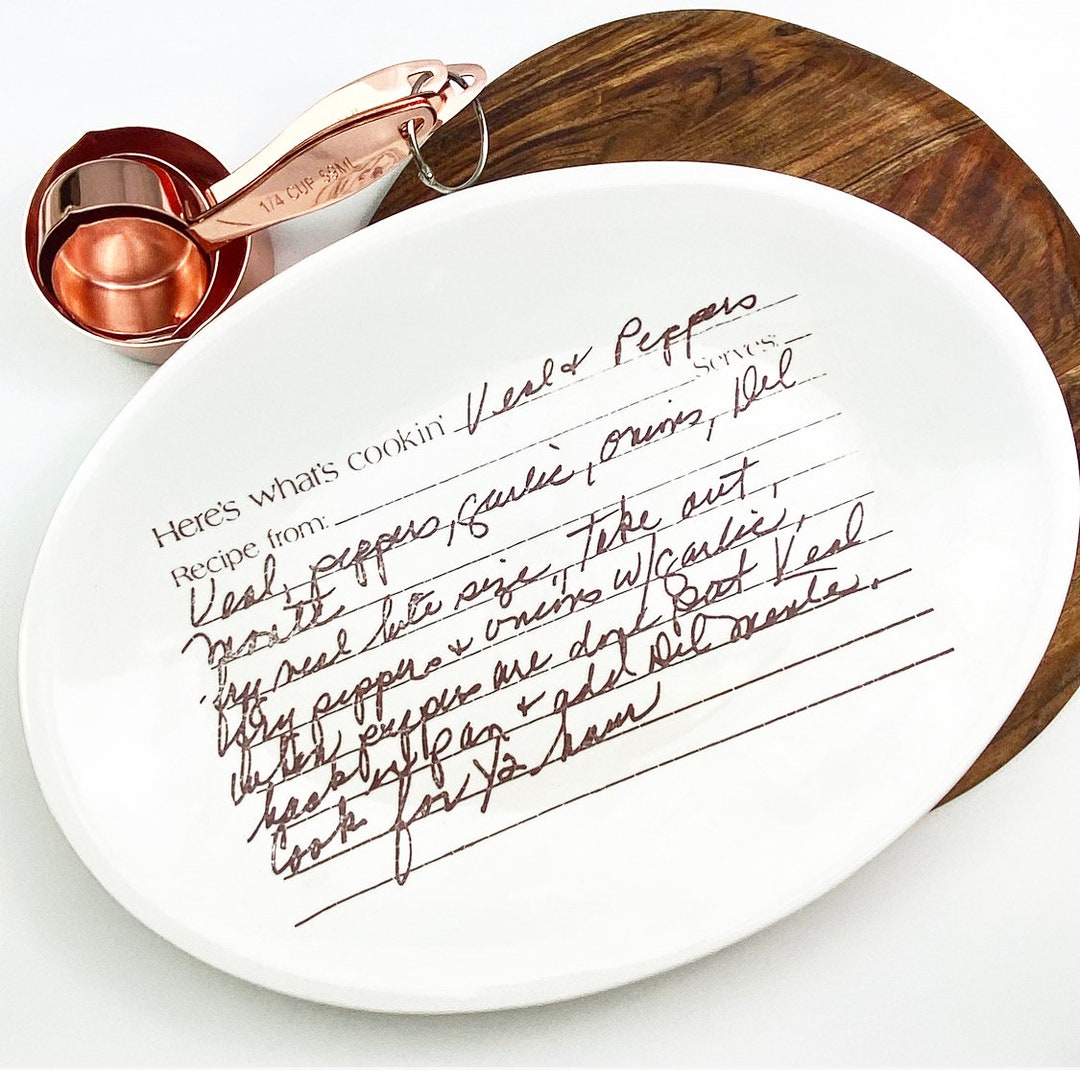 1/4 CUP 59ML
Here's what's cookin' Veal & Peppers
Recipe from: Serves:
Veal, peppers, garlic, onions, Del
monte
fry veal bite size, Take out,
fry peppers & onions w/garlic,
when peppers are done put Veal
back in pan & add Del monte.
Cook for 1/2 hour